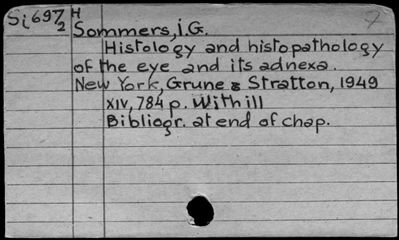 Si 697/2 H 7
Sommers, i.G.
Histology and histopathology
of the eye and its adnexa.
New York, Grune & Stratton, 1949
XIV, 784 p. With ill
Bibliogr. at end of chap.